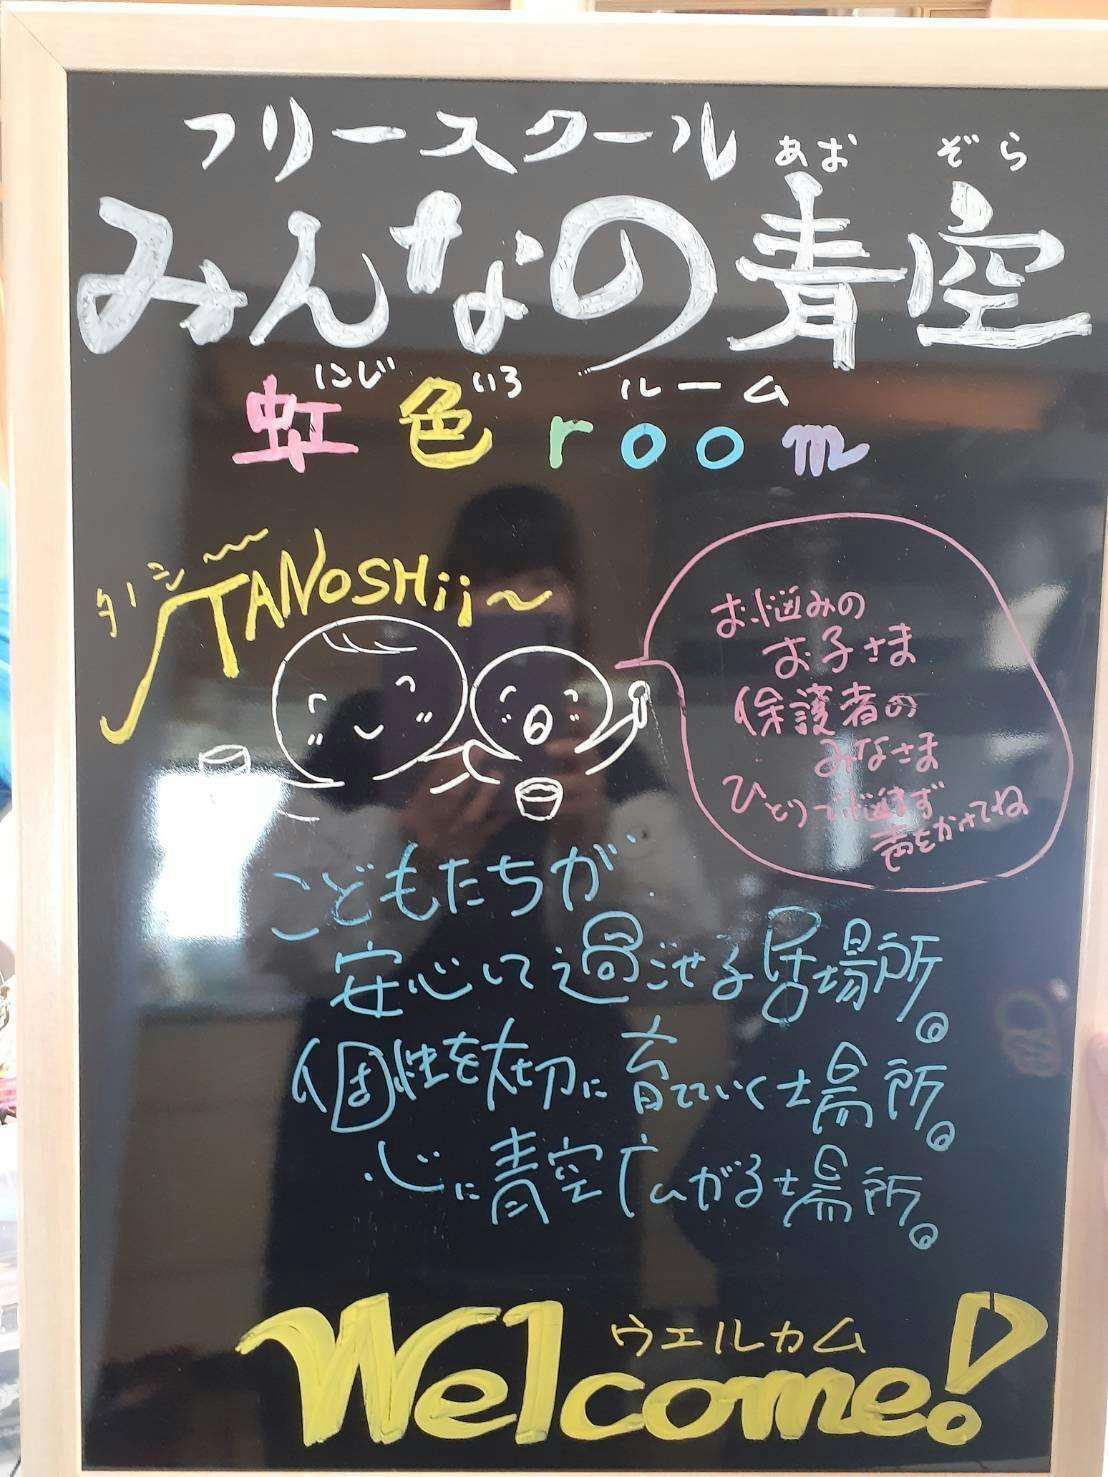 フリースクール
あお ぞら
みんなの青空
にじ いろ ルーム
虹色room
ターノシ〜
TANOSHii〜
お悩みの
お子さま
保護者の
みなさま
ひとりで悩まず
声をかけてね
こどもたちが
安心して過ごせる居場所。
個性を大切に育てていく場所。
心に青空広がる場所。
ウエルカム
Welcome!